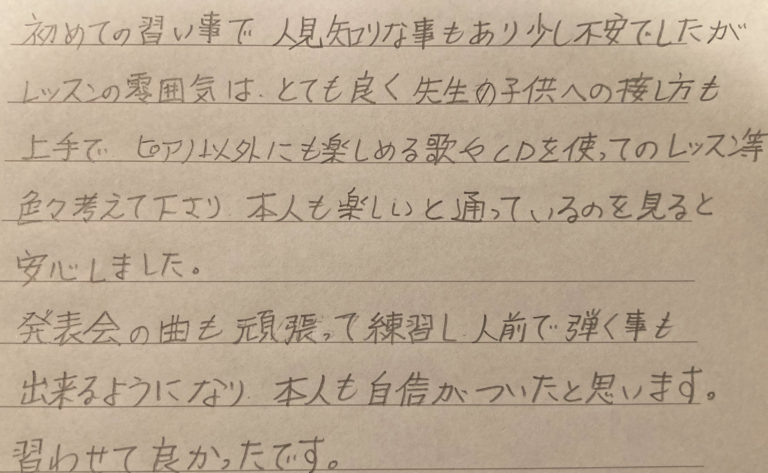 初めての習い事で 人見知りな事もあり少し不安でしたが
レッスンの雰囲気は、とても良く 先生の子供への接し方も
上手で ピアノ以外にも楽しめる歌やCDを使ってのレッスン等
色々考えて下さり、本人も楽しいと通っているのを見ると
安心しました。
発表会の曲も 頑張って練習し 人前で弾く事も
出来るようになり、本人も自信がついたと思います。
習わせて良かったです。